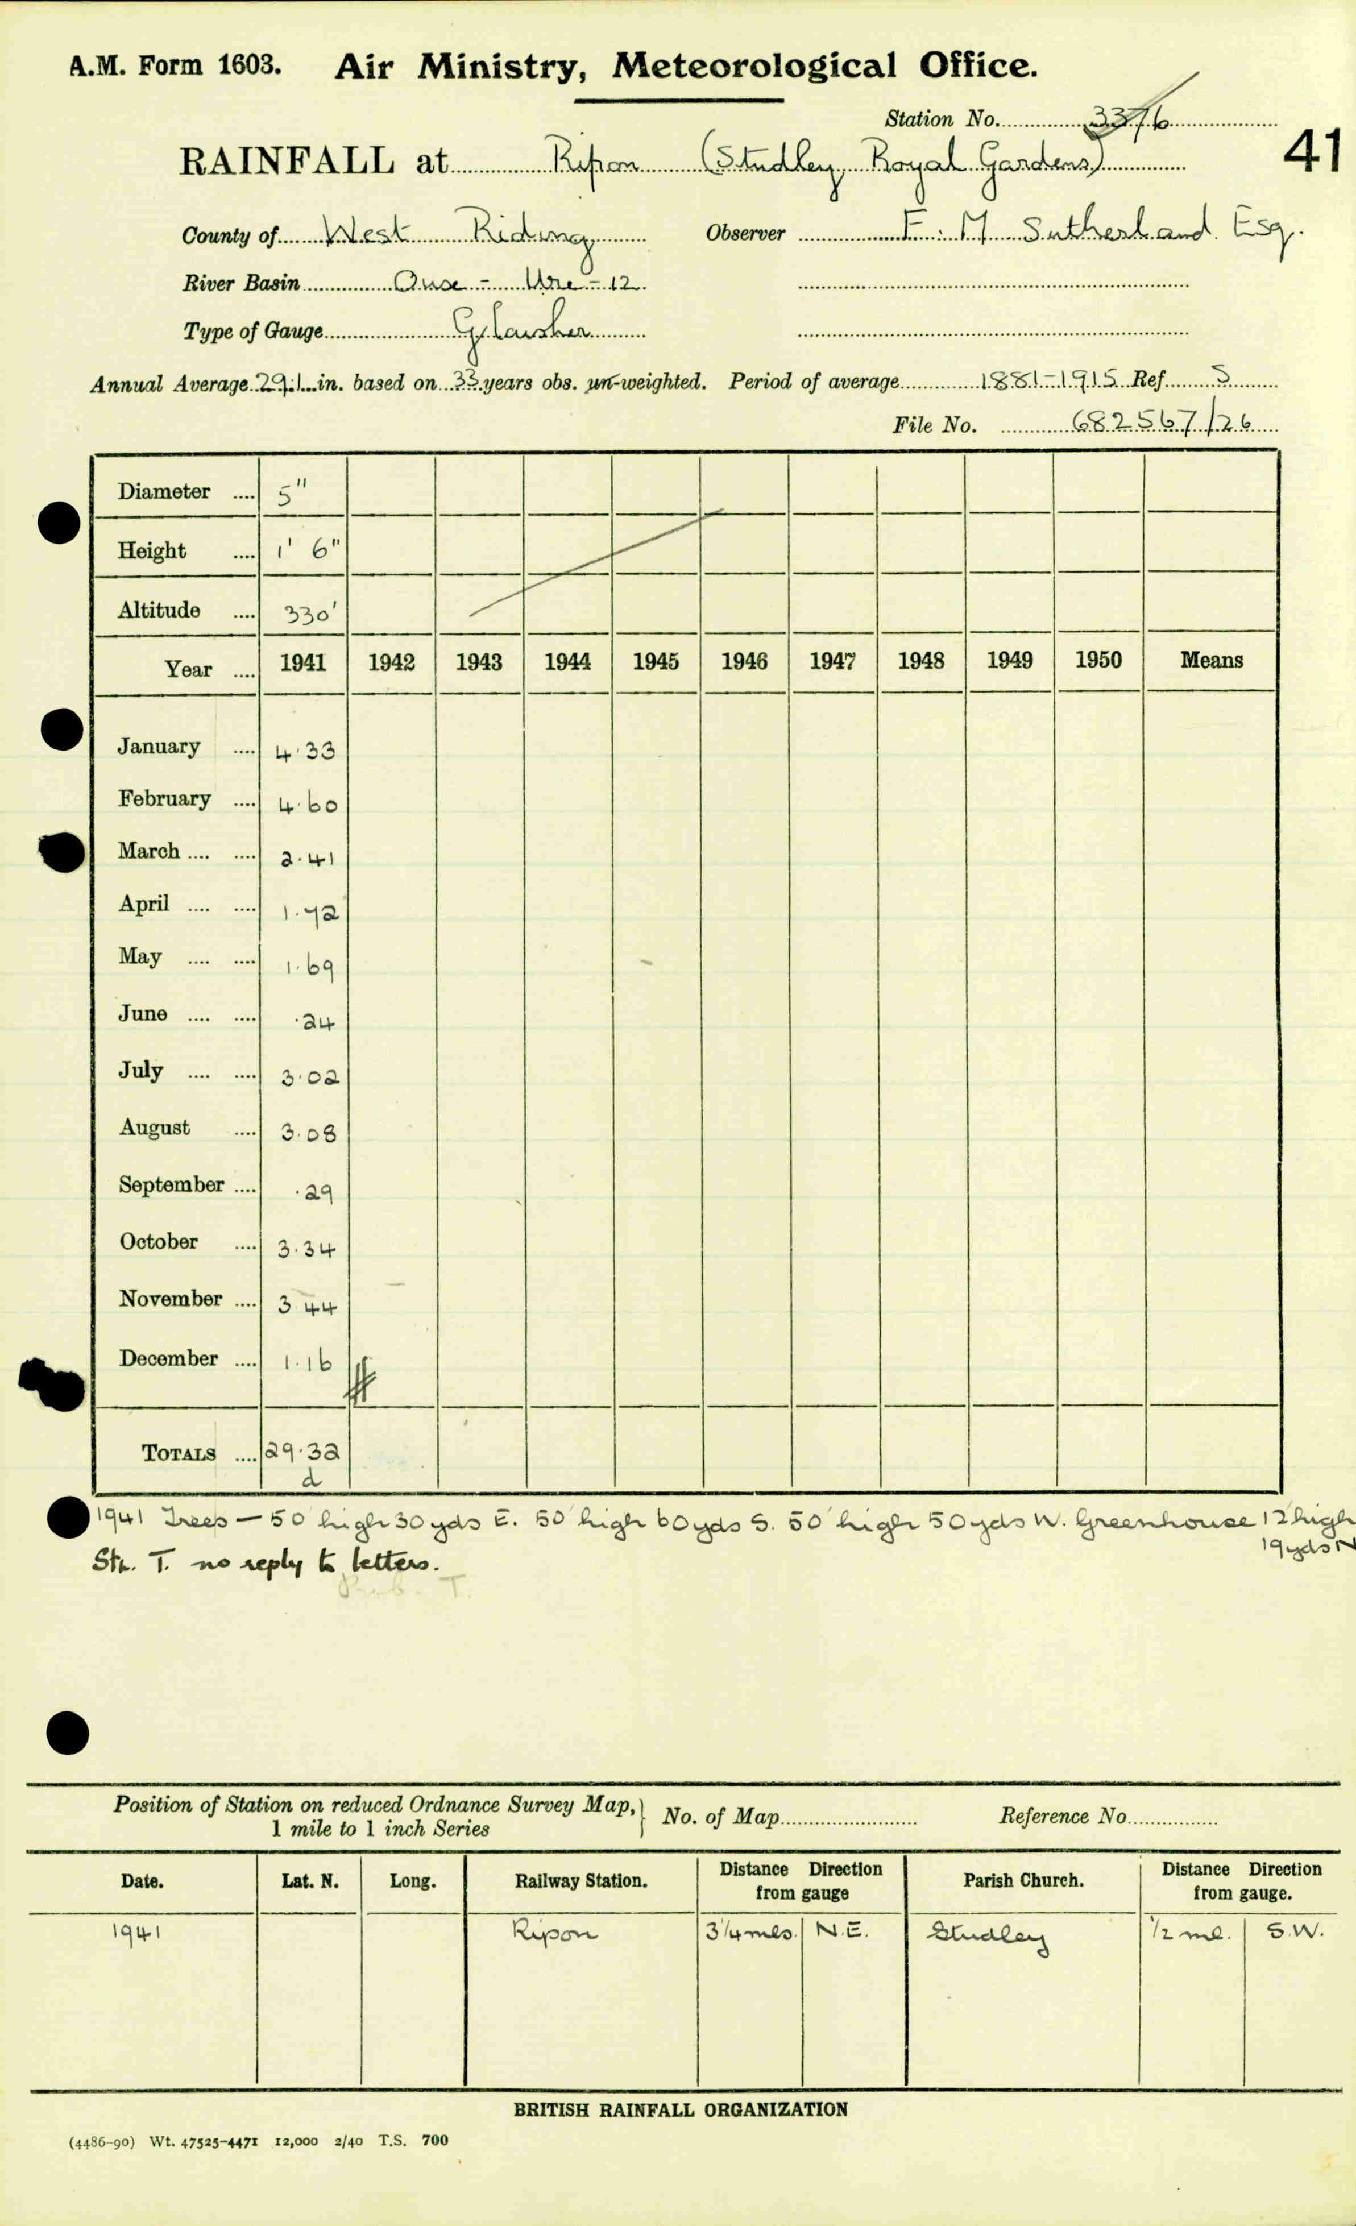 A.M. Form 1603. Air Ministry, Meteorological Office.
Station No. 3376
41
RAINFALL at Ripon (Studley Royal Gardens)
County of West Riding Observer F. M Sutherland Esq.
River Basin Ouse - Ure - 12
Type of Gauge Glaisher
Annual Average 29.1 in. based on 33 years obs. un-weighted. Period of average 1881-1915 Ref. S
File No. 682567/26
Diameter .... 5"
Height .... 1' 6"
Altitude .... 330'
Year .... 1941 1942 1943 1944 1945 1946 1947 1948 1949 1950 Means
January .... 4.33
February .... 4.60
March .... .... 2.41
April .... .... 1.72
May .... .... 1.69
June .... .... .24
July .... .... 3.02
August .... 3.08
September .... .29
October .... 3.34
November .... 3 44
December .... 1.16
TOTALS .... 29.32
d
1941 Trees - 50' high 30 yds E. 50' high 60 yds S. 50' high 50 yds W. Greenhouse 12' high
19 yds N
Stn. T. no reply to letters.
Prob. T.
Position of Station on reduced Ordnance Survey Map, 1 mile to 1 inch Series } No. of Map Reference No.
Date. Lat. N. Long. Railway Station. Distance Direction from gauge Parish Church. Distance Direction from gauge.
1941 Ripon 3 1/4 mls. N.E. Studley 1/2 ml. S.W.
BRITISH RAINFALL ORGANIZATION
(4486-90) Wt. 47525-4471 12,000 2/40 T.S. 700